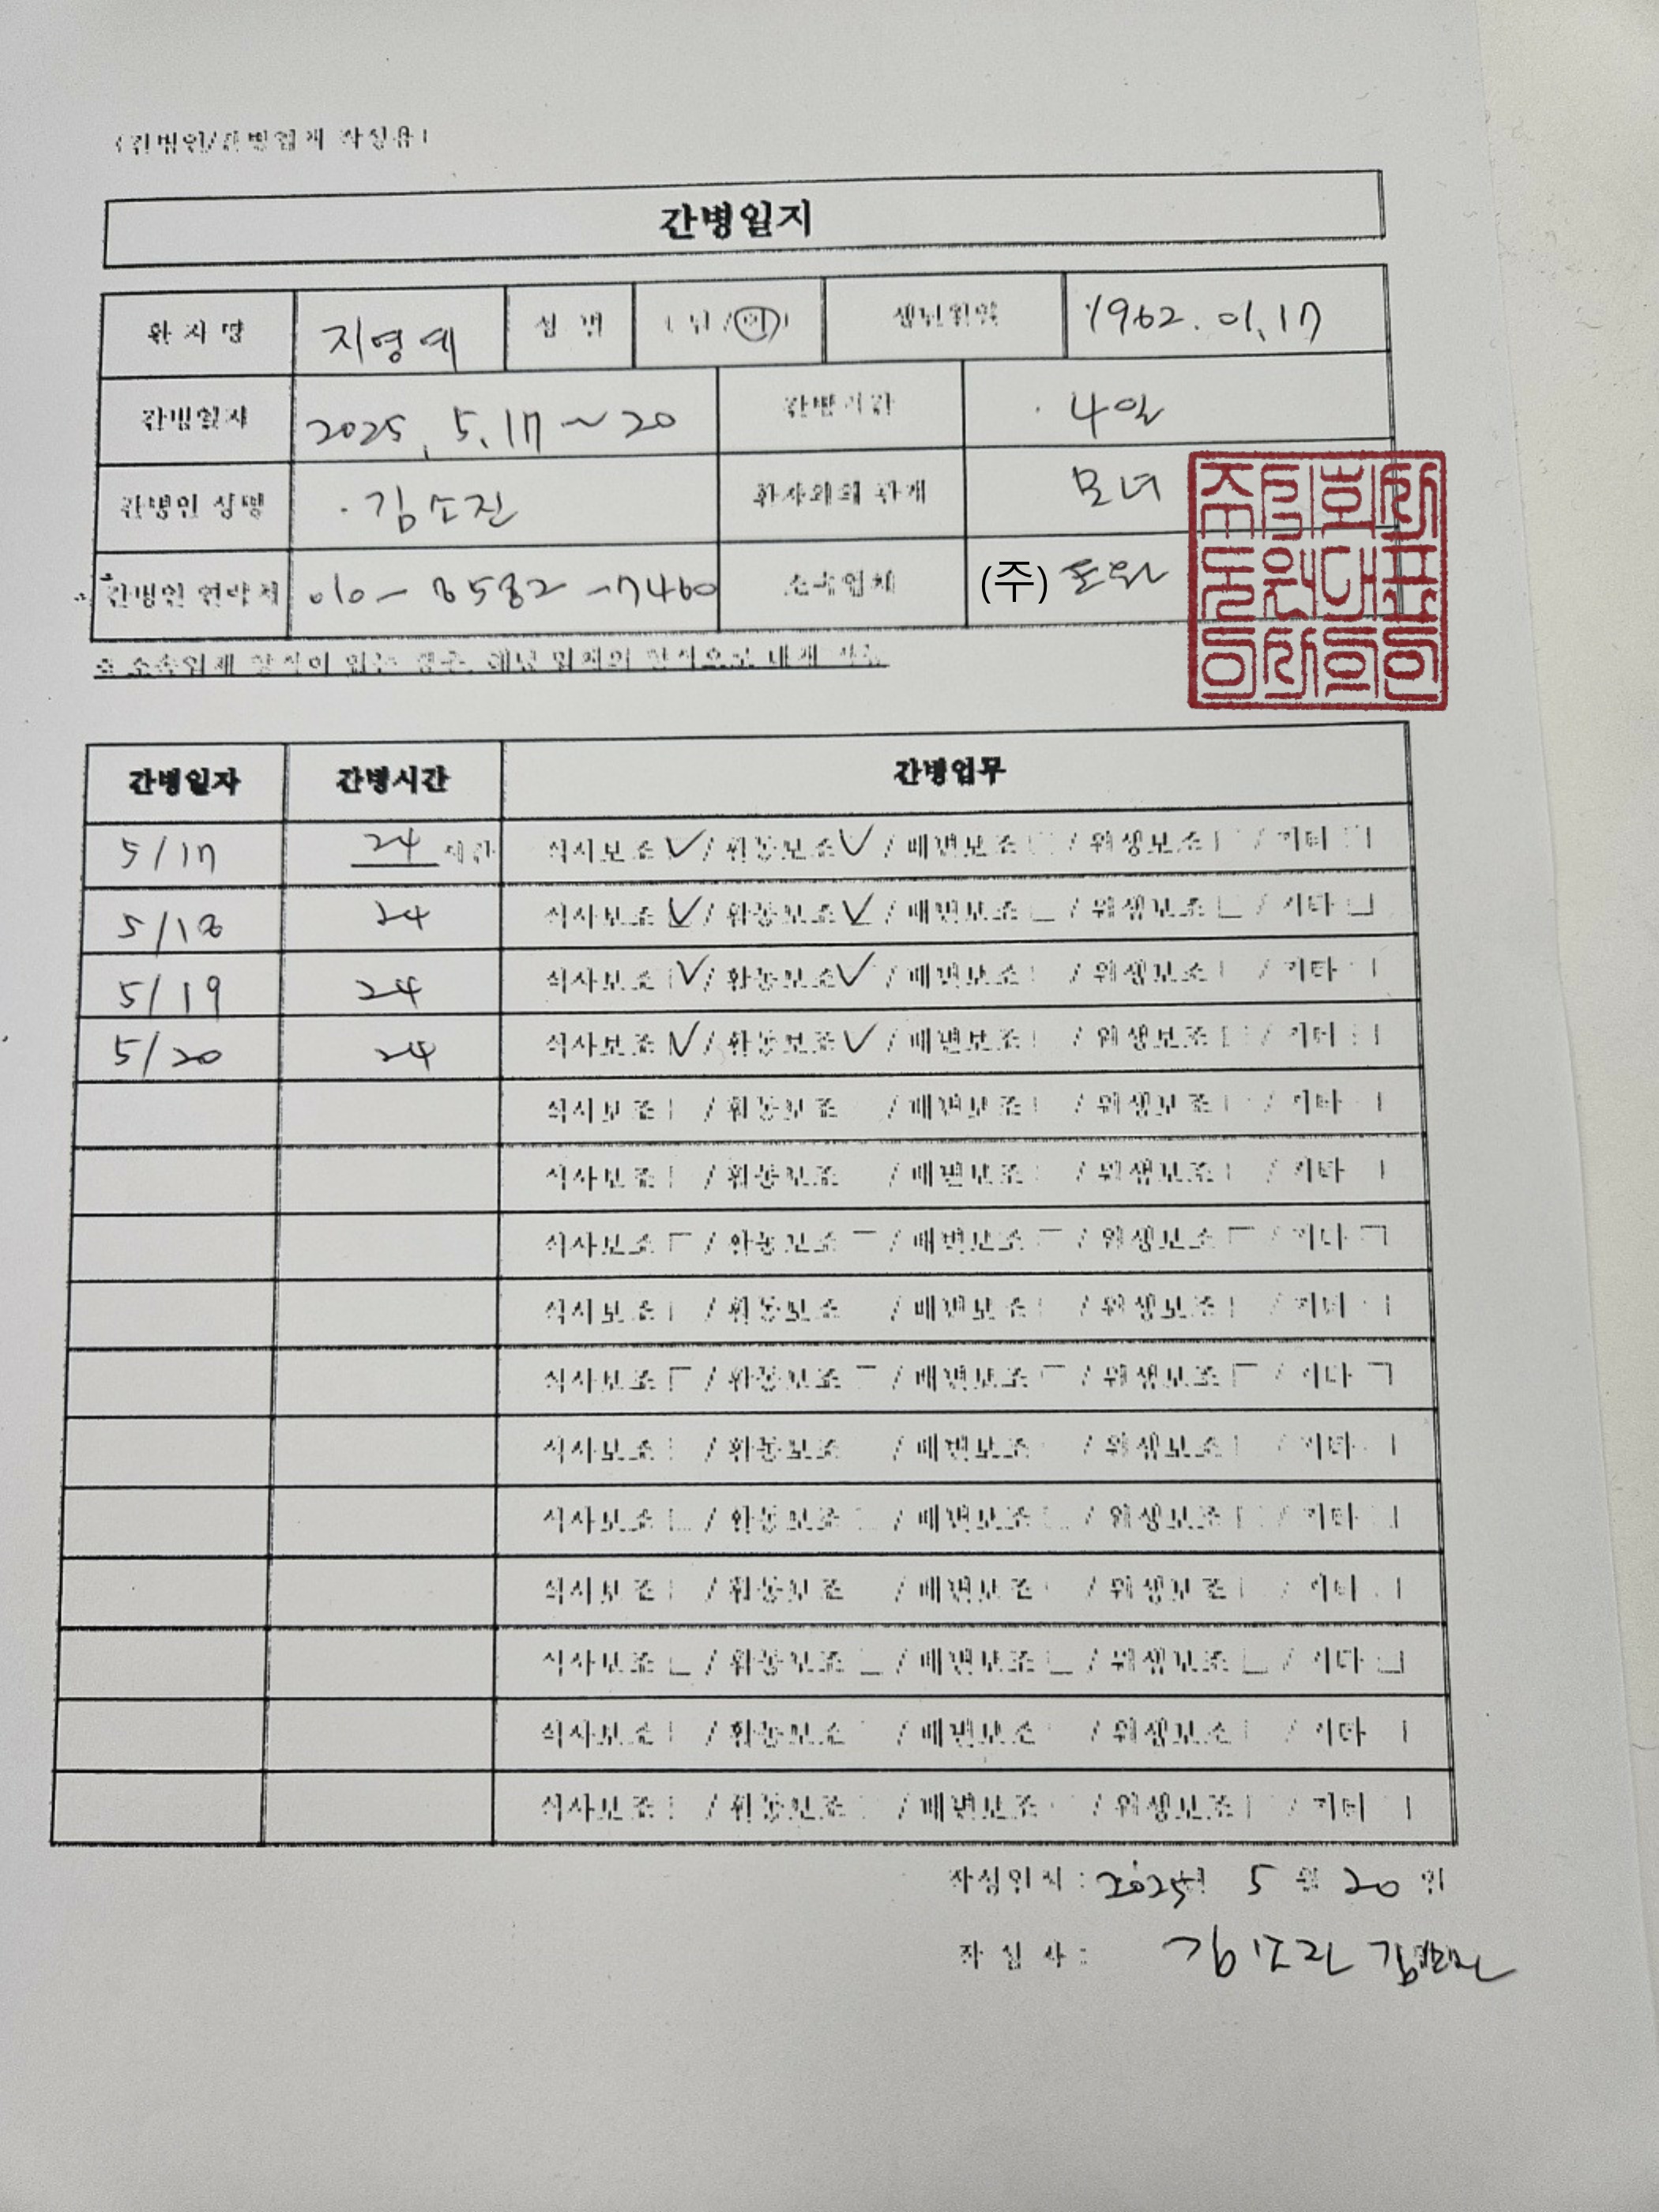 (간병인/간병업체 작성용)
간병일지
환 자 명 지영예 성 별 ( 남 / 여 ) 생년월일 1962. 01. 17
간병일자 2025. 5. 17 ~ 20 간병기간 4일
간병인 성명 김소진 환자와의 관계 모녀
간병인 연락처 010 - 8582 - 7460 소속업체 (주) 도원
※ 소속업체 양식이 있는 경우, 해당 업체의 양식으로 대체 가능
간병일자 간병시간 간병업무
5/17 24 시간 식사보조 ✓ / 활동보조 ✓ / 배변보조 □ / 위생보조 □ / 기타 □
5/18 24 식사보조 ✓ / 활동보조 ✓ / 배변보조 □ / 위생보조 □ / 기타 □
5/19 24 식사보조 ✓ / 활동보조 ✓ / 배변보조 □ / 위생보조 □ / 기타 □
5/20 24 식사보조 ✓ / 활동보조 ✓ / 배변보조 □ / 위생보조 □ / 기타 □
식사보조 □ / 활동보조 □ / 배변보조 □ / 위생보조 □ / 기타 □
식사보조 □ / 활동보조 □ / 배변보조 □ / 위생보조 □ / 기타 □
식사보조 □ / 활동보조 □ / 배변보조 □ / 위생보조 □ / 기타 □
식사보조 □ / 활동보조 □ / 배변보조 □ / 위생보조 □ / 기타 □
식사보조 □ / 활동보조 □ / 배변보조 □ / 위생보조 □ / 기타 □
식사보조 □ / 활동보조 □ / 배변보조 □ / 위생보조 □ / 기타 □
식사보조 □ / 활동보조 □ / 배변보조 □ / 위생보조 □ / 기타 □
식사보조 □ / 활동보조 □ / 배변보조 □ / 위생보조 □ / 기타 □
식사보조 □ / 활동보조 □ / 배변보조 □ / 위생보조 □ / 기타 □
식사보조 □ / 활동보조 □ / 배변보조 □ / 위생보조 □ / 기타 □
식사보조 □ / 활동보조 □ / 배변보조 □ / 위생보조 □ / 기타 □
작성일시 : 2025년 5 월 20 일
작 성 자 : 김소진